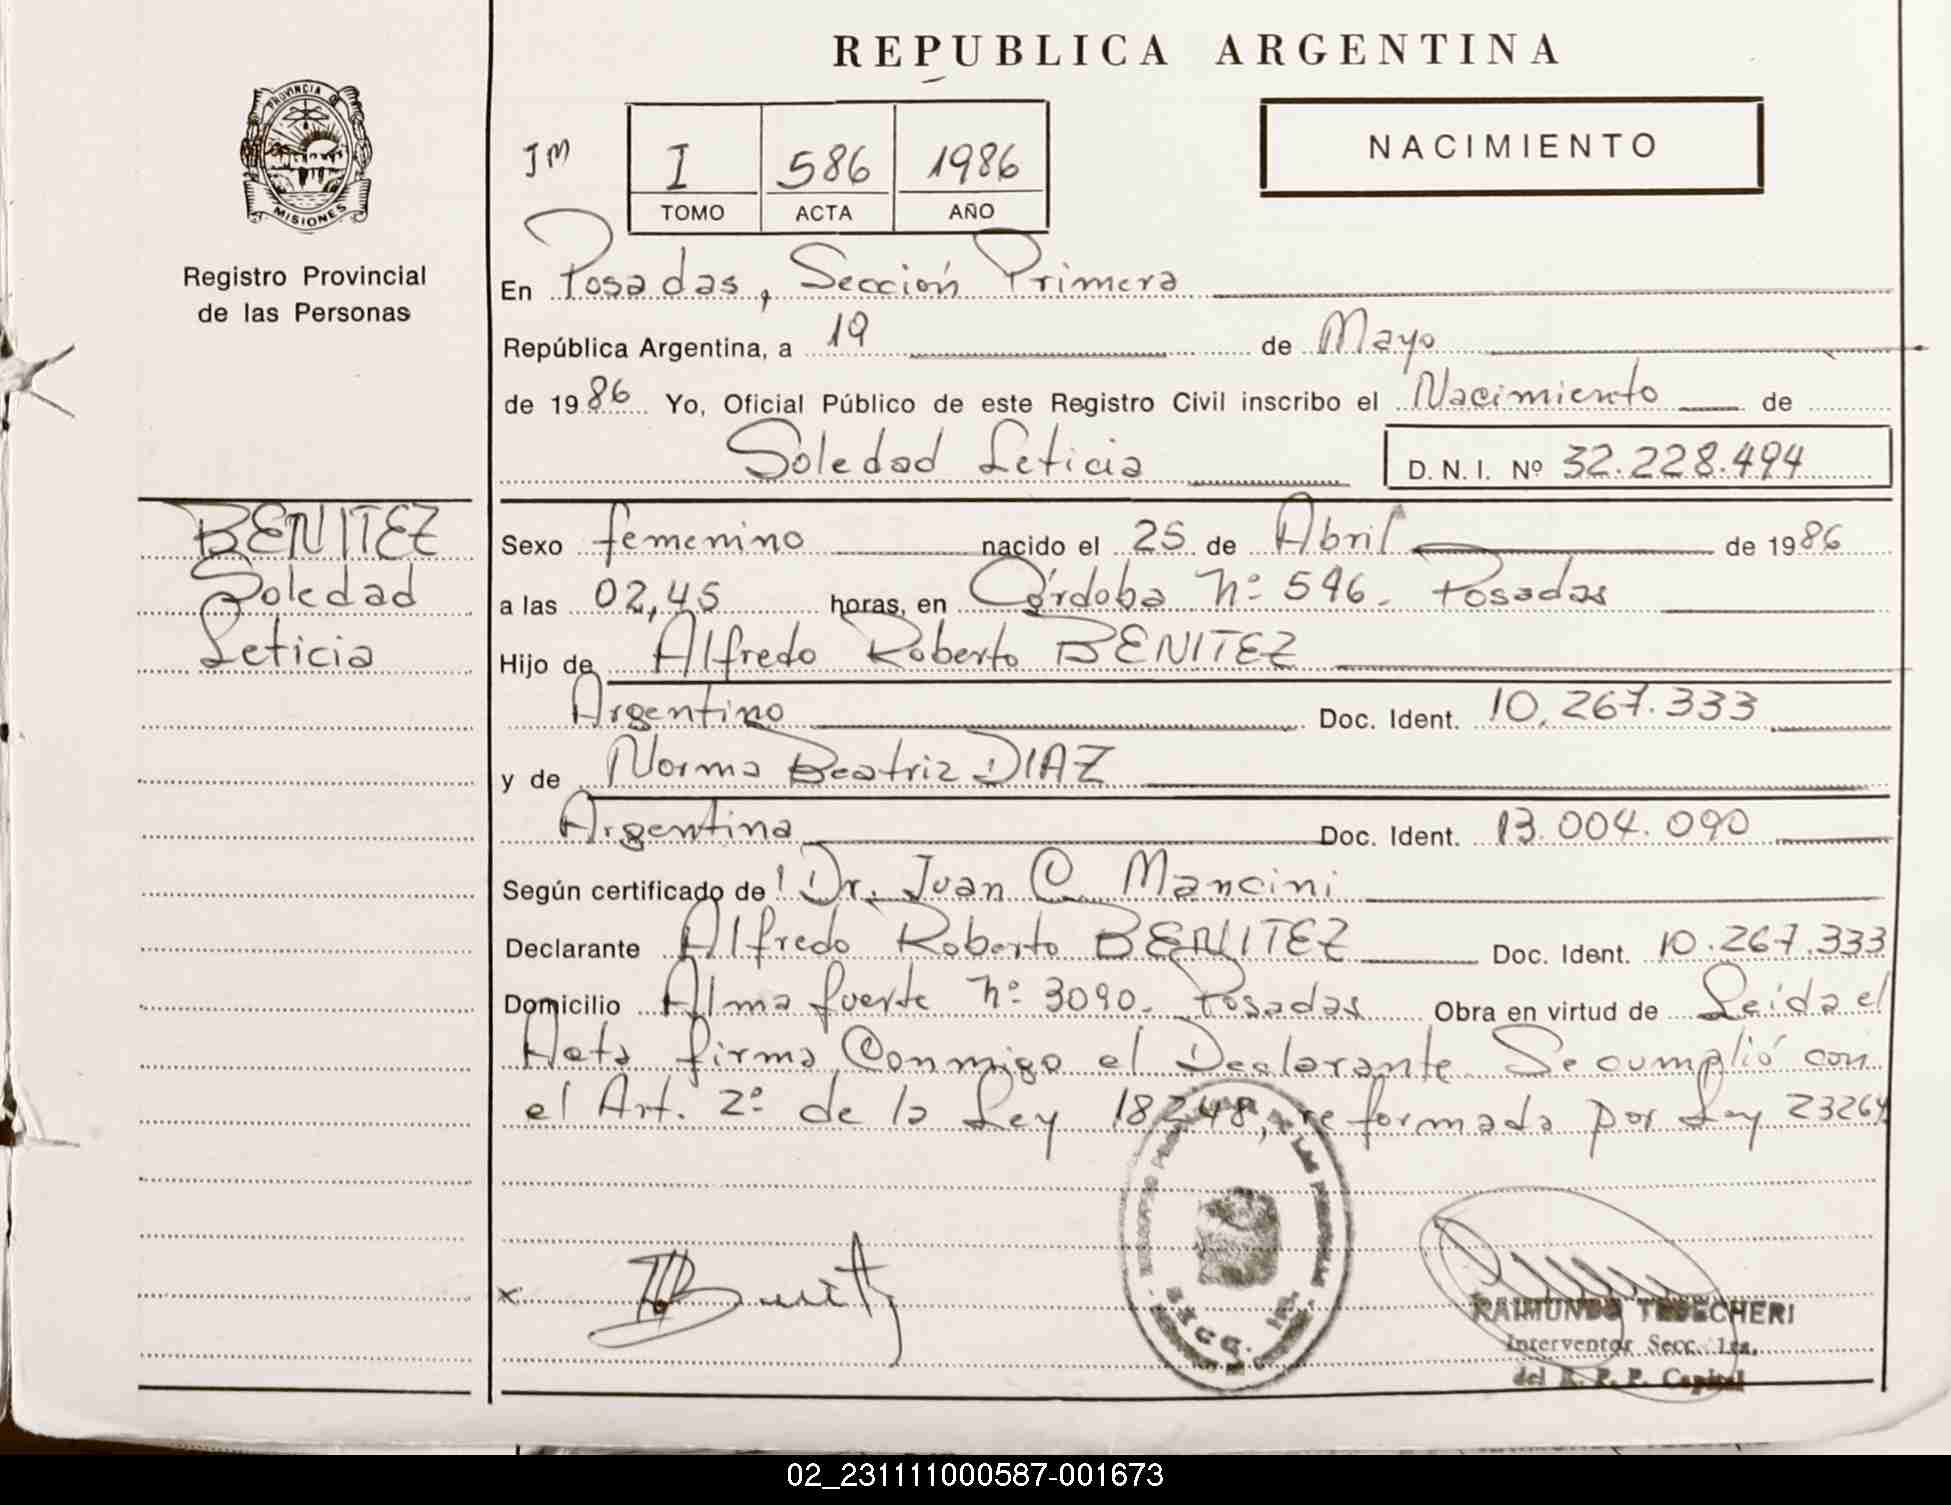 REPUBLICA ARGENTINA
PROVINCIA DE
MISIONES
Registro Provincial
de las Personas
JM
I 586 1986
TOMO ACTA AÑO
NACIMIENTO
En Posadas, Sección Primera
República Argentina, a 19 de Mayo
de 1986 Yo, Oficial Público de este Registro Civil inscribo el Nacimiento de
Soledad Leticia D. N. I. Nº 32.228.494
BENITEZ
Soledad
Leticia
Sexo femenino nacido el 25 de Abril de 1986
a las 02,45 horas, en Córdoba Nº 596. Posadas
Hijo de Alfredo Roberto BENITEZ
Argentino Doc. Ident. 10.267.333
y de Norma Beatriz DIAZ
Argentina Doc. Ident. 13.004.090
Según certificado de Dr. Juan C. Mancini
Declarante Alfredo Roberto BENITEZ Doc. Ident. 10.267.333
Domicilio Alma fuerte Nº 3090. Posadas Obra en virtud de Leída el
Acta firma Conmigo el Declarante Se cumplió con
el Art. 2º de la Ley 18248, reformada por Ley 23264
x
RAIMUNDO
Interventor Secc. 1ra.
del R. P. P. Capital
02_231111000587-001673